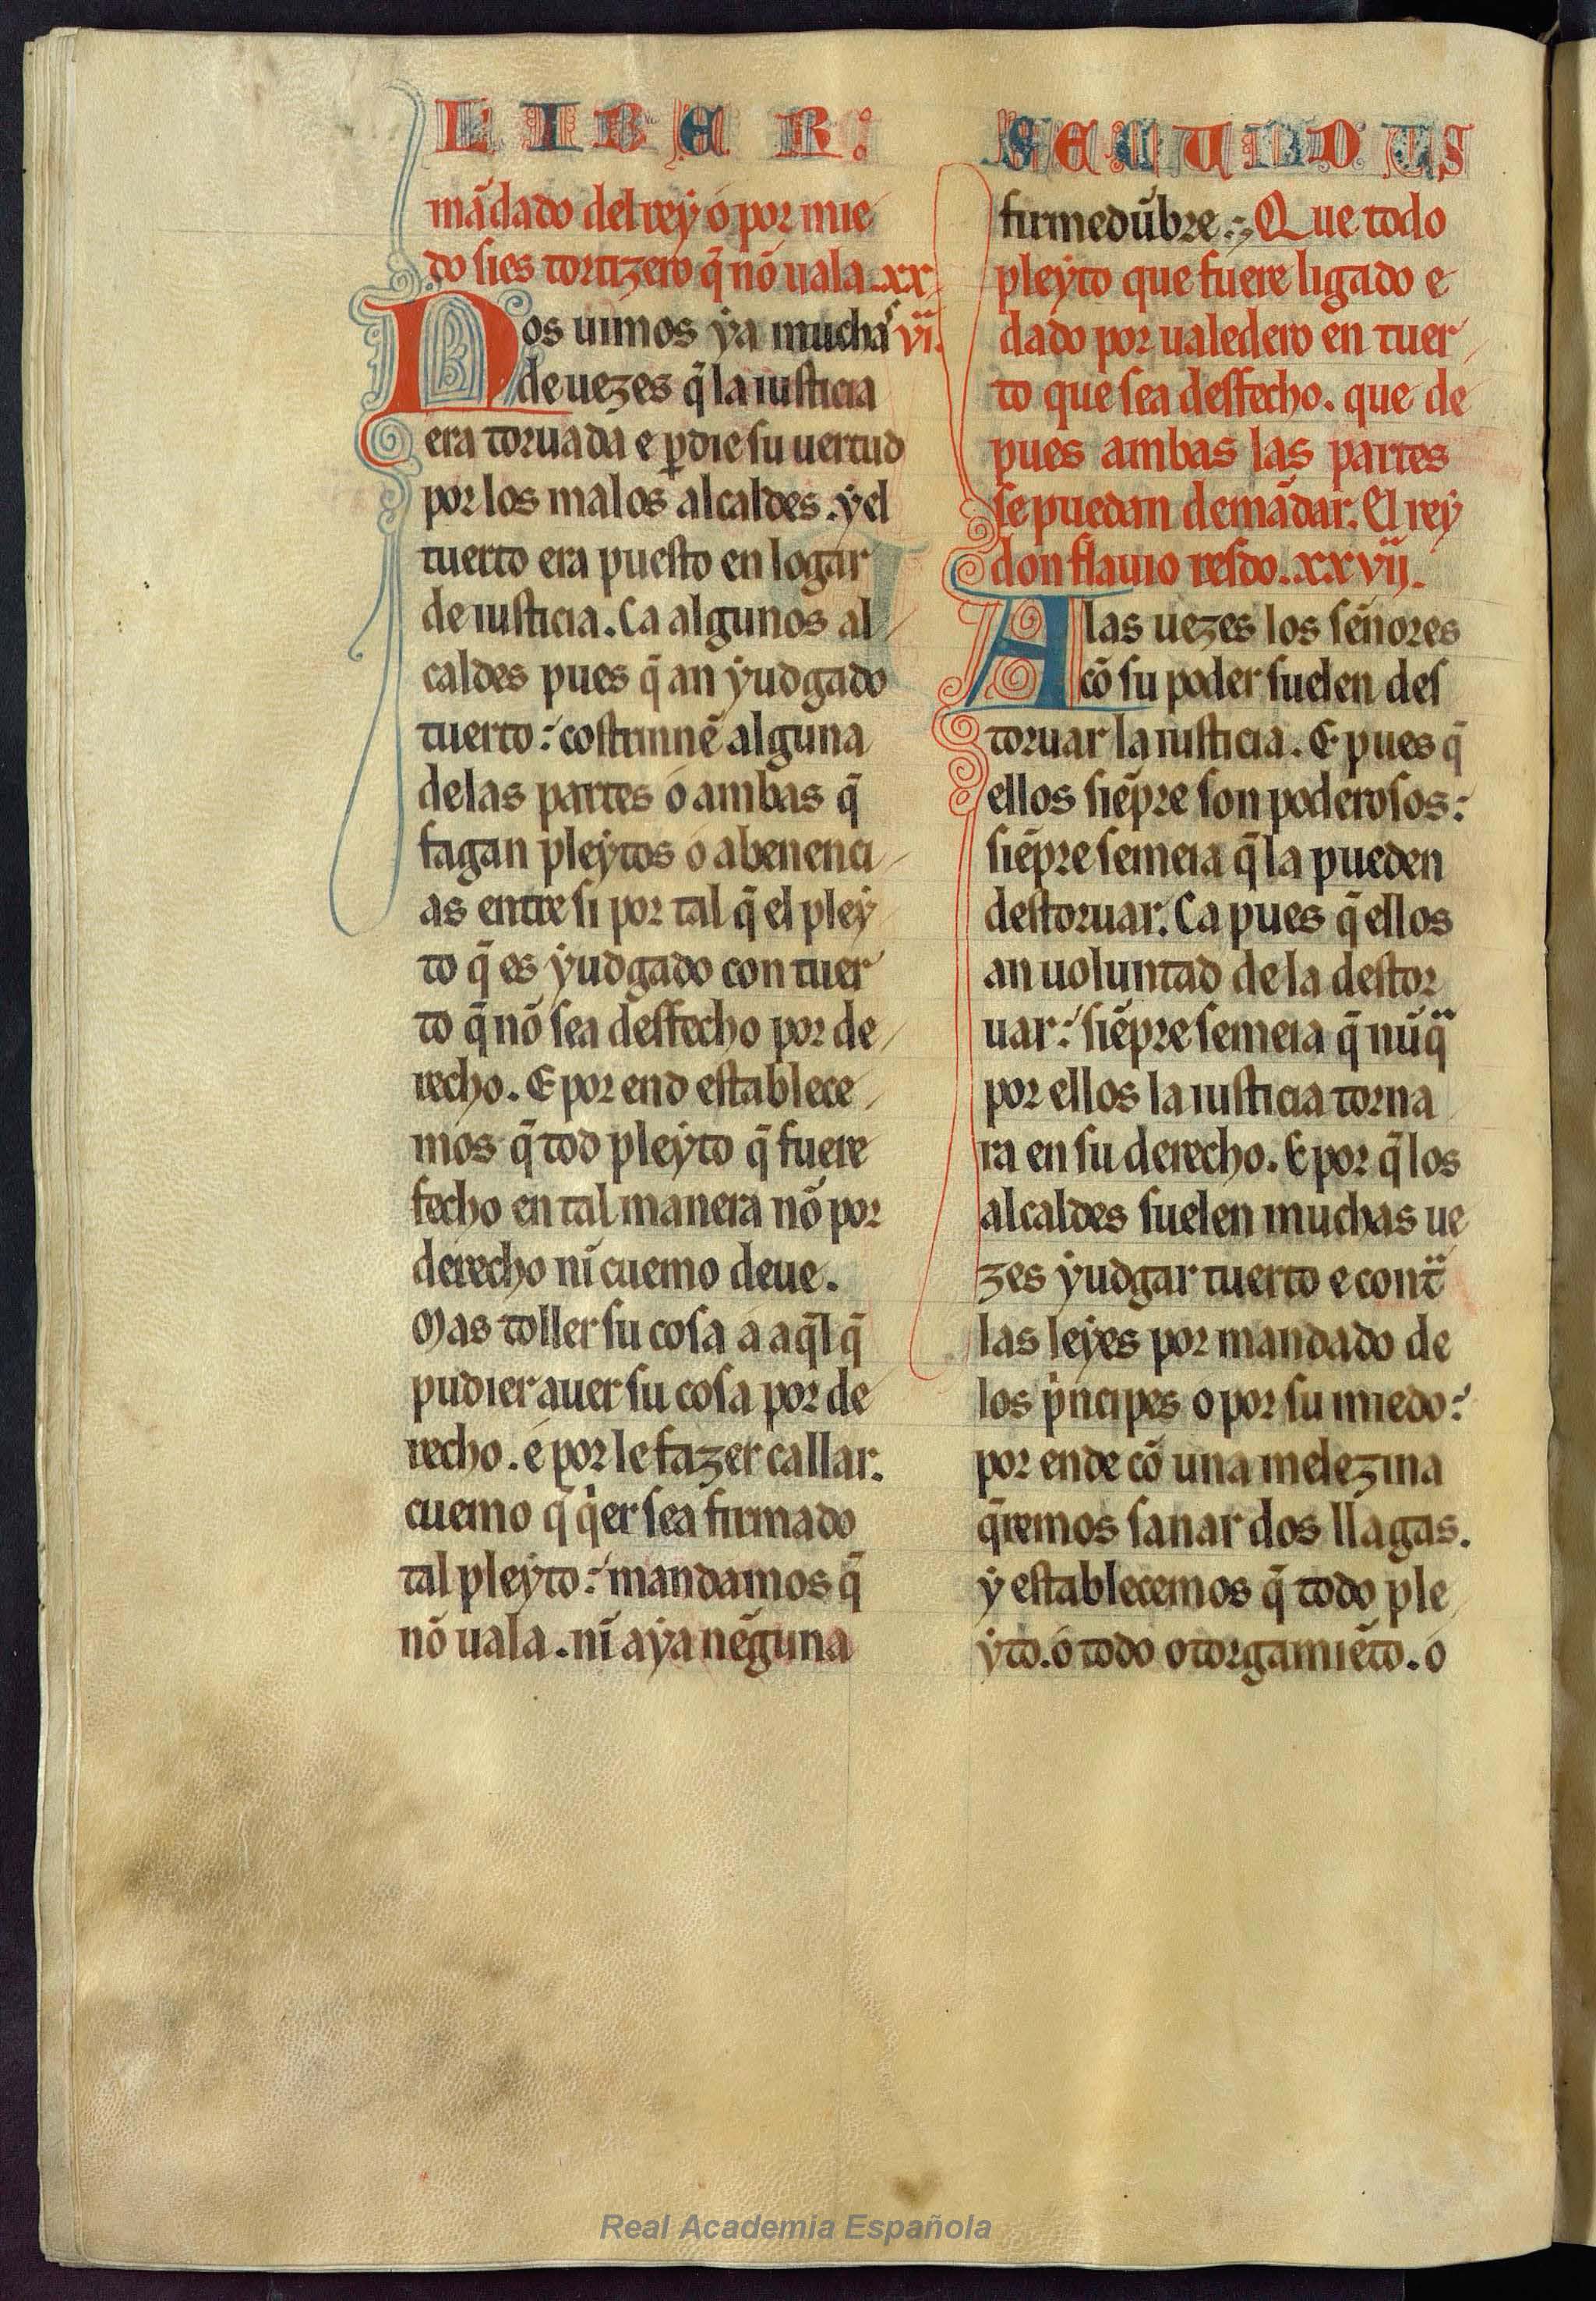 LIBER:
mãdado del rey o por mie
do si es tortizero q̃ nõ uala .xx
vi.
Nos uimos ya muchas
de uezes q̃ la iusticia
era toruada e ꝑdie su uertud
por los malos alcaldes. y el
tuerto era puesto en logar
de iusticia. Ca algunos al
caldes pues q̃ an yudgado
tuerto: costrinnẽ alguna
delas partes o ambas q̃
fagan pleytos o abenenci
as entre si por tal q̃ el pley
to q̃ es yudgado con tuer
to q̃ nõ sea desfecho por de
recho. E por end establece
mos q̃ tod pleyto q̃ fuere
fecho en tal manera nõ por
derecho nĩ cuemo deue.
Mas toller su cosa a aq̃l q̃
pudier auer su cosa por de
recho. e por le fazer callar.
cuemo q̃ q̃er sea firmado
tal pleyto: mandamos q̃
nõ uala. nĩ aya nẽguna
SECUNDUS
firmedũbre. Que todo
pleyto que fuere ligado e
dado por ualedero en tuer
to que sea desfecho. que de
pues ambas las partes
se puedan demãdar. El rey
don flauio resdo. .xxvij.
A las uezes los señores
cõ su poder suelen des
toruar la iusticia. E pues q̃
ellos siẽpre son poderosos:
siẽpre semeia q̃ la pueden
destoruar. Ca pues q̃ ellos
an uoluntad de la destor
uar: siẽpre semeia q̃ nũq̃
por ellos la iusticia torna
ra en su derecho. E por q̃ los
alcaldes suelen muchas ue
zes yudgar tuerto e cont̃
las leyes por mandado de
los p̃ncipes o por su miedo:
por ende cõ una melezina
q̃remos sanar dos llagas.
y establecemos q̃ todo ple
yto. o todo otorgamiẽto. o
Real Academia Española